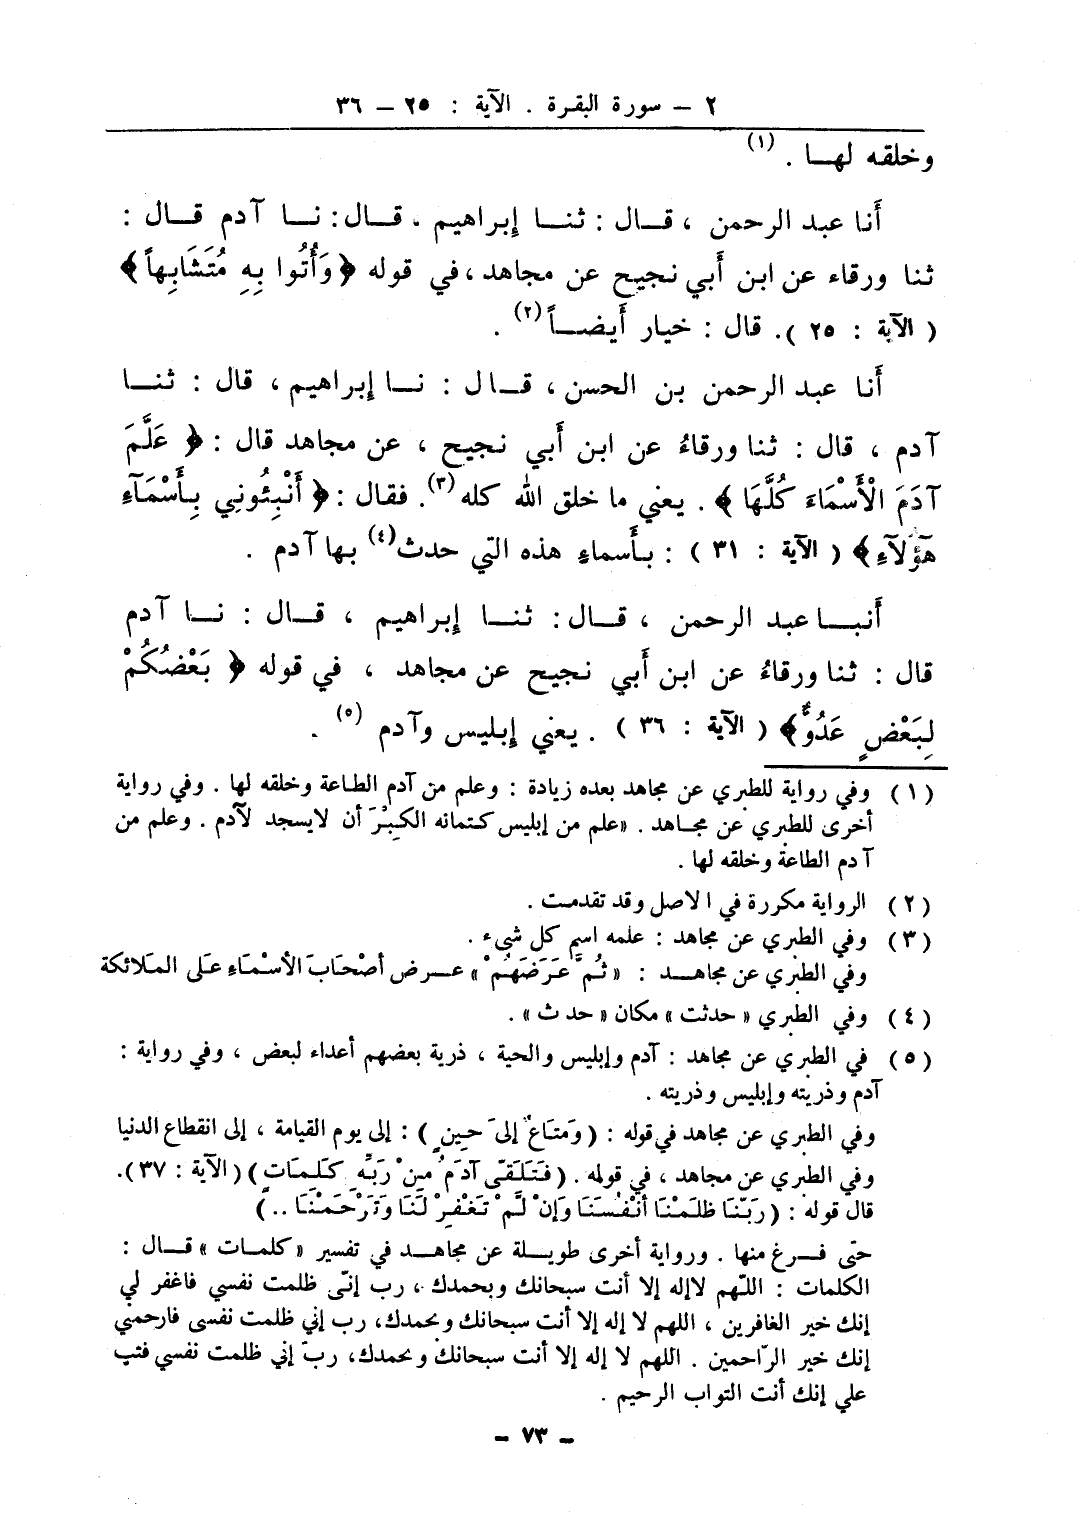 ٢ – سورة البقرة . الآية : ٢٥ – ٣٦
وخلقه لهـا . (١)
أَنا عبد الرحمن ، قـال : ثنـا إِبراهيم . قـال : نـا آدم قـال :
ثنا ورقاء عن ابن أَبي نجيح عن مجاهد ، في قوله ﴿ وَأُتُوا بِهِ مُتَشَابِهاً ﴾
( الآية : ٢٥ ). قال : خيار أَيضـاً (٢) .
أَنا عبد الرحمن بن الحسن ، قـال : نـا إِبراهيم ، قال : ثنـا
آدم ، قال : ثنا ورقاءُ عن ابن أَبي نجيح ، عن مجاهد قال : ﴿ عَلَّمَ
آدَمَ الْأَسْمَاءَ كُلَّهَا ﴾ . يعني ما خلق الله كله (٣). فقال : ﴿ أَنْبِئُونِي بِأَسْمَآءِ
هَؤُلَآءِ ﴾ ( الآية : ٣١ ) : بأَسماءِ هذه التي حدث (٤) بها آدم .
أَنبـا عبد الرحمن ، قـال : ثنـا إِبراهيم ، قـال : نـا آدم
قال : ثنا ورقاءُ عن ابن أَبي نجيح عن مجاهد ، في قوله ﴿ بَعْضُكُمْ
لِبَعْضٍ عَدُوٌّ ﴾ ( الآية : ٣٦ ) . يعني إِبليس وآدم (٥) .
(١) وفي رواية للطبري عن مجاهد بعده زيادة : وعلم من آدم الطاعة وخلقه لها . وفي رواية
أخرى للطبري عن مجـاهد . «علم من إبليس كتمانه الكِبْرَ أن لايسجد لآدم . وعلم من
آدم الطاعة وخلقه لها .
(٢) الرواية مكررة في الاصل وقد تقدمت .
(٣) وفي الطبري عن مجاهد : علمه اسم كل شيء .
وفي الطبري عن مجاهـد : «ثُمَّ عَرَضَهُمْ» عـرض أصْحَابَ الأسْمَاءِ عَلى المَلائكة
(٤) وفي الطبري «حدثت» مكان «حدث» .
(٥) في الطبري عن مجاهد : آدم وإبليس والحية ، ذرية بعضهم أعداء لبعض ، وفي رواية :
آدم وذريته وإبليس وذريته .
وفي الطبري عن مجاهد في قوله : ( وَمتَاعٌ إلىَ حِينٍ ) : إلى يوم القيامة ، إلى انقطاع الدنيا
وفي الطبري عن مجاهد ، في قوله . ( فَتَلَقّى آدَمُ مِنْ رَبِّهِ كَلَمَاتٍ ) ( الآية : ٣٧ ).
قال قوله : ( رَبّنَا ظَلَمْنَا أنْفُسَنَا وَإنْ لَّمْ تَغْفِرْ لَنَا وَتَرْحَمْنَا .. )
حتى فـرغ منها . ورواية أخرى طويـلة عن مجاهـد في تفسير «كلمـات» قـال :
الكلمات : اللّهم لاإله إلا أنت سبحانك وبحمدك ، رب إنّى ظلمت نفسي فاغفر لي
إنك خير الغافرين ، اللهم لا إله إلا أنت سبحانك وبحمدك، رب إني ظلمت نفسى فارحمني
إنك خير الرّاحمين . اللهم لا إله إلا أنت سبحانك وبحمدك، ربّ إني ظلمت نفسي فتب
علي إنك أنت التواب الرحيم .
– ٧٣ –